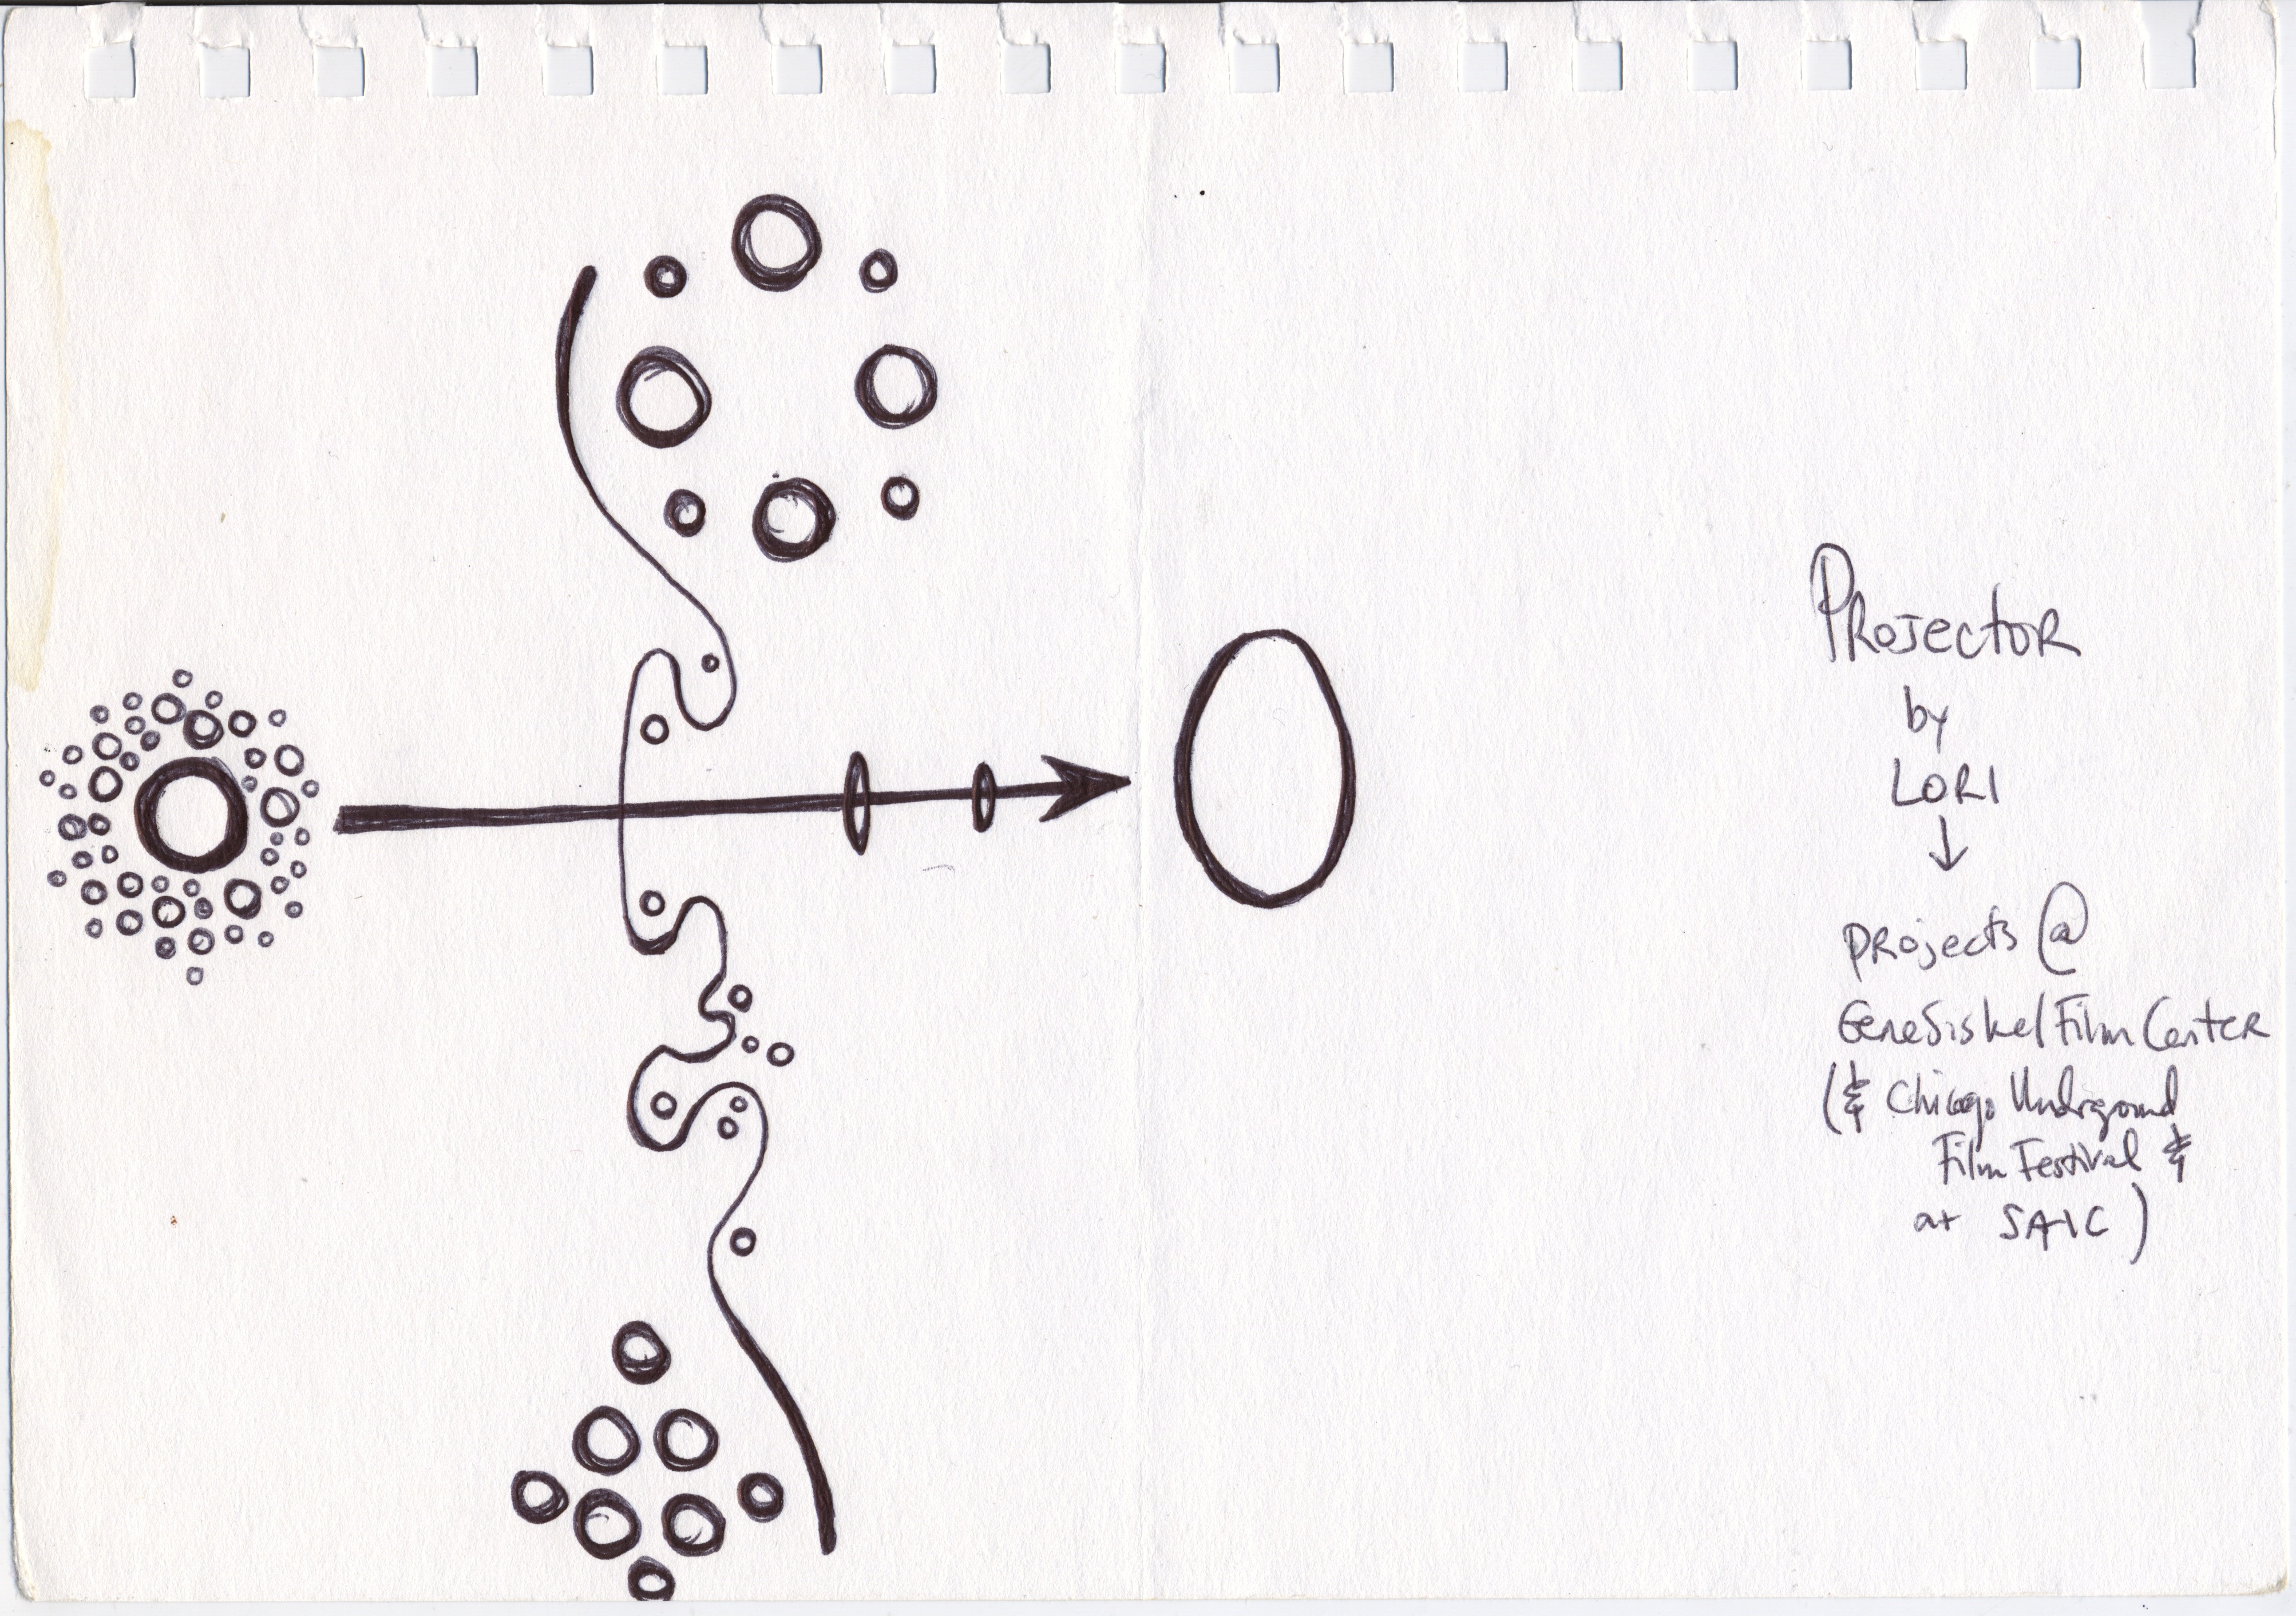 PRojectoR
by
LORI
↓
PRojects @
Gene Siskel Film Center
(& Chicago Undrground
Film Festival &
at SAIC)